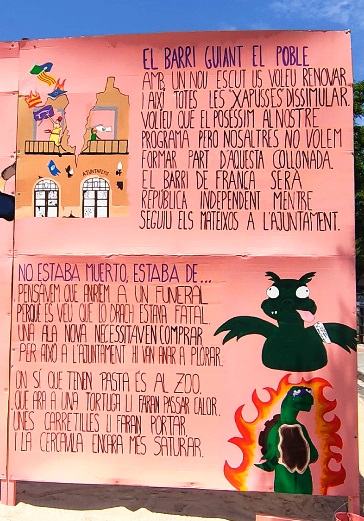 EL BARRI GUIANT EL POBLE
AMB UN NOU ESCUT US VOLEU RENOVAR
I AIXÍ TOTES LES XAPUSSES DISSIMULAR.
VOLÍEU QUE EL POSÉSSIM AL NOSTRE
PROGRAMA PERÒ NOSALTRES NO VOLEM
FORMAR PART D'AQUESTA COLLONADA.
EL BARRI DE FRANÇA SERÀ
REPÚBLICA INDEPENDENT MENTRE
SEGUIU ELS MATEIXOS A L'AJUNTAMENT.
AJUNTAMENT
NO ESTABA MUERTO, ESTABA DE...
PENSÀVEM QUE ANÀVEM A UN FUNERAL
PERQUÈ ES VEU QUE LO DRACH ESTAVA FATAL
UNA ALA NOVA NECESSITAVEN COMPRAR
PER AIXÒ A L'AJUNTAMENT HI VAN ANAR A PLORAR.
ON SÍ QUE TENEN PASTA ÉS AL ZOO.
QUE ARA A UNA TORTUGA LI FARAN PASSAR CALOR.
UNES CARRETILLES LI FARAN PORTAR
I LA CERCAVILA ENCARA MÉS SATURAR.